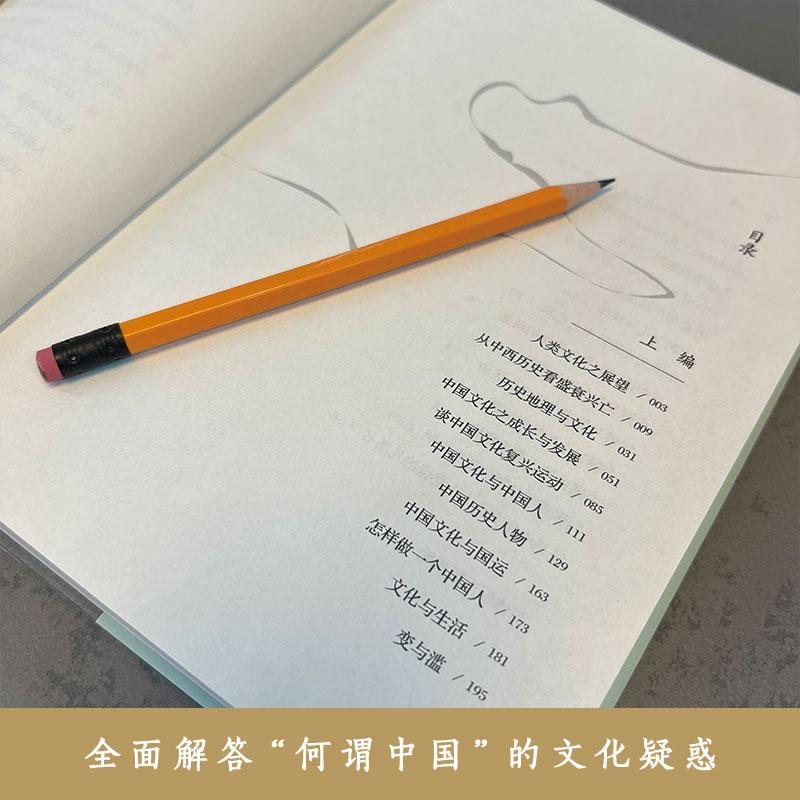 目录
上 编
人类文化之展望 / 003
从中西历史看盛衰兴亡 / 009
历史地理与文化 / 031
中国文化之成长与发展 / 051
谈中国文化复兴运动 / 085
中国文化与中国人 / 111
中国历史人物 / 129
中国文化与国运 / 163
怎样做一个中国人 / 173
文化与生活 / 181
变与滥 / 195
全面解答“何谓中国”的文化疑惑